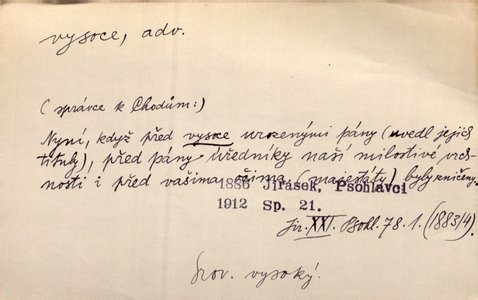 vysoce, adv.
(správce k Chodům:)
Nyní, když před vysoce urozenými pány (uvedl jejich
tituly), před pány úředníky naší milostivé vrch-
nosti i před vašima očima (majestáty) byly zničeny.
1886 Jirásek, Psohlavci
1912 Sp. 21.
Jir. XXI. Psohl. 78. 1. (1883/4).
Srov. vysoký.